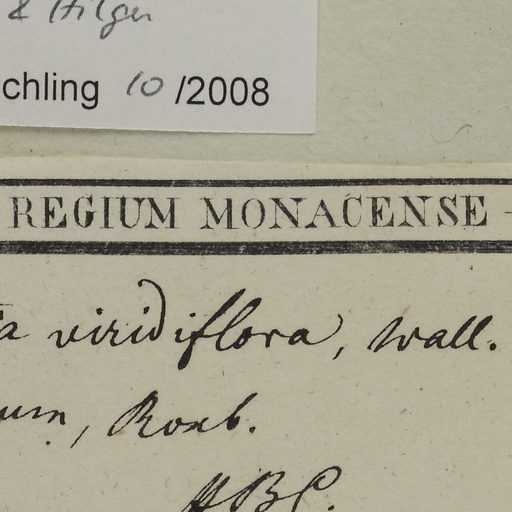 & Hilger
chling 10/2008
REGIUM MONACENSE -
ia viridiflora, Wall.
um, Roxb.
HBC.